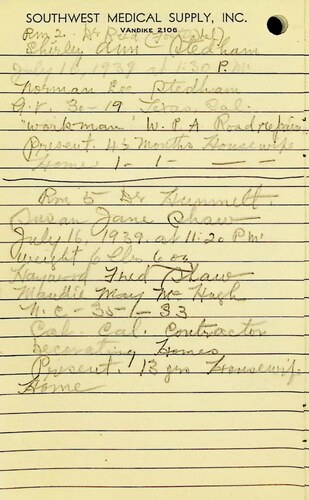 SOUTHWEST MEDICAL SUPPLY, INC.
VANDIKE 2106
Rm 2. Dr
Shirley Ann Stedham
July 1939 at 1:30 P.M.
Norman Stedham
30-19 Texas, Cal.
"workman" W.P.A Road repair
Present 4 months Housewife
Home 1-1- — —
Rm 5 Dr Hummett
Susan Jane Shaw
July 16, 1939. at 11:20 P.M.
Weight 6 lbs 6 oz
Haywood Fred Shaw
Maudie May Mc Hugh
N.C - 35-1-33
Cal. Cal. Contractor
Decorating Homes
Present. 13 yrs Housewife
Home